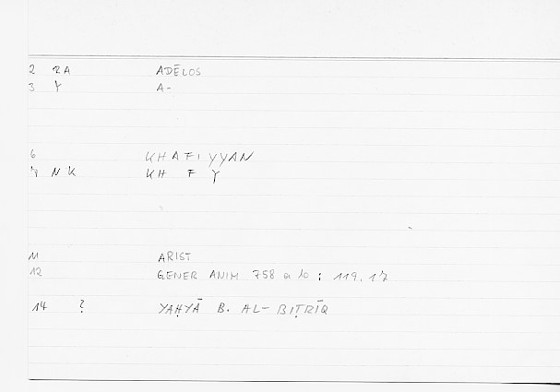 2 RA ADĒLOS
3 Y A-
6 KHAFIYYAN
NK KH F Y
11 ARIST
12 GENER ANIM 758 a 10 ; 119.17
14 ? YAḤYĀ B. AL-BIṬRĪQ